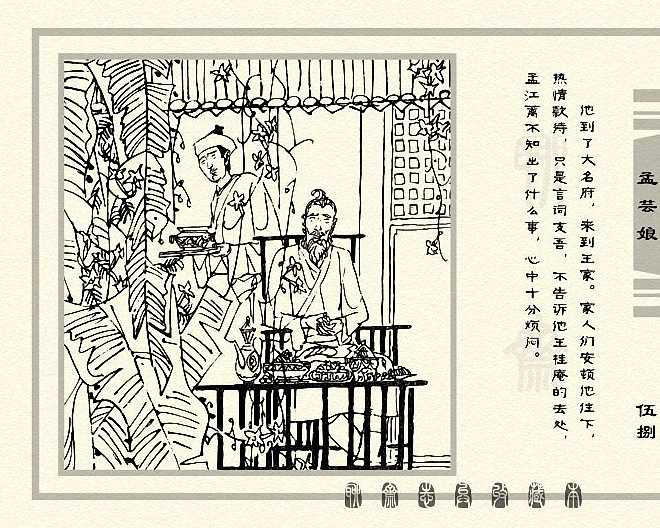 他到了大名府，来到王家。家人们安顿他住下，
热情款待，只是言词支吾，不告诉他王桂庵的去处，
孟江离不知出了什么事，心中十分烦闷。
孟芸娘
伍捌